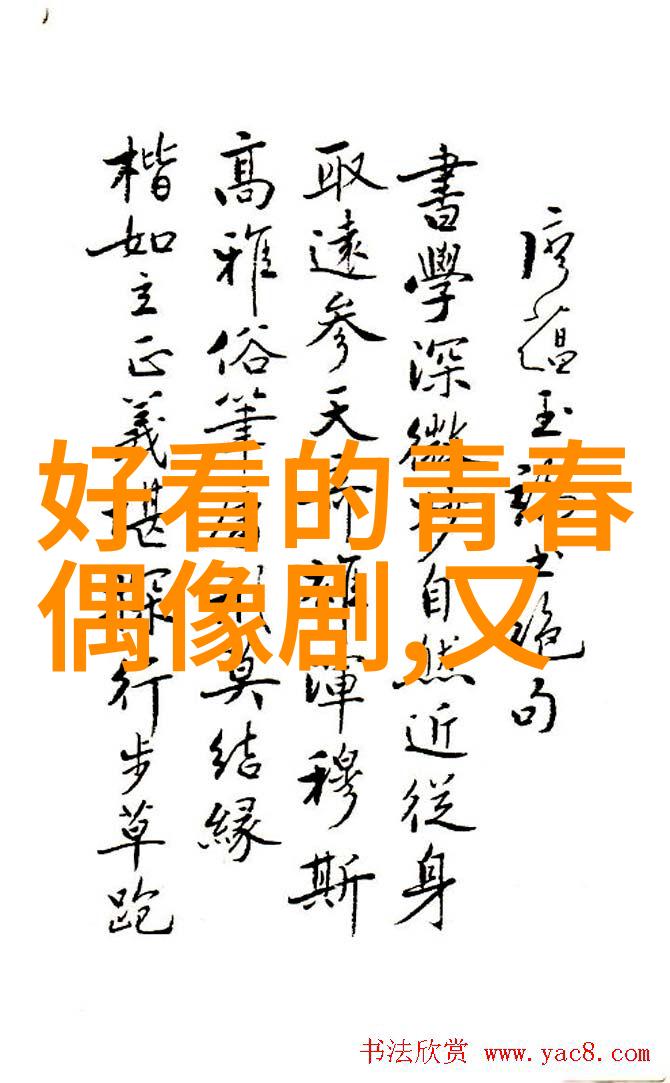 好看的青春
偶像剧,又
廖蘊玉論书絕句
書學深微妙自然近從身
取遠參天雄渾穆斯
高雅俗筆莫結緣
楷如立正義堪深行步草跑
书法欣赏 www.yac8.com